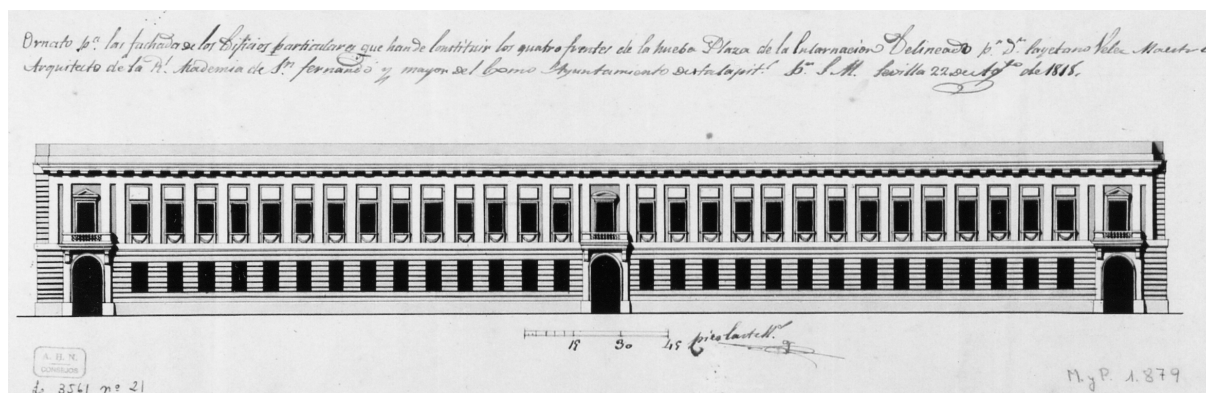 Ornato pª. las fachadas de los Edificios particulares que han de Constituir los quatro frentes de la nueba Plaza de la Encarnacion Delineado pʳ Dⁿ. Cayetano Velez Maestro
Arquitecto de la Rˡ. Academia de Sⁿ. Fernando y mayor del Exmo Ayuntamiento de Capitˡ. Pʳ S. M. Sevilla 22 de Agᵗᵒ de 1818.
15 30 45
A. H. N.
CONSEJOS
3561 nº 21
M. y P. 1.879